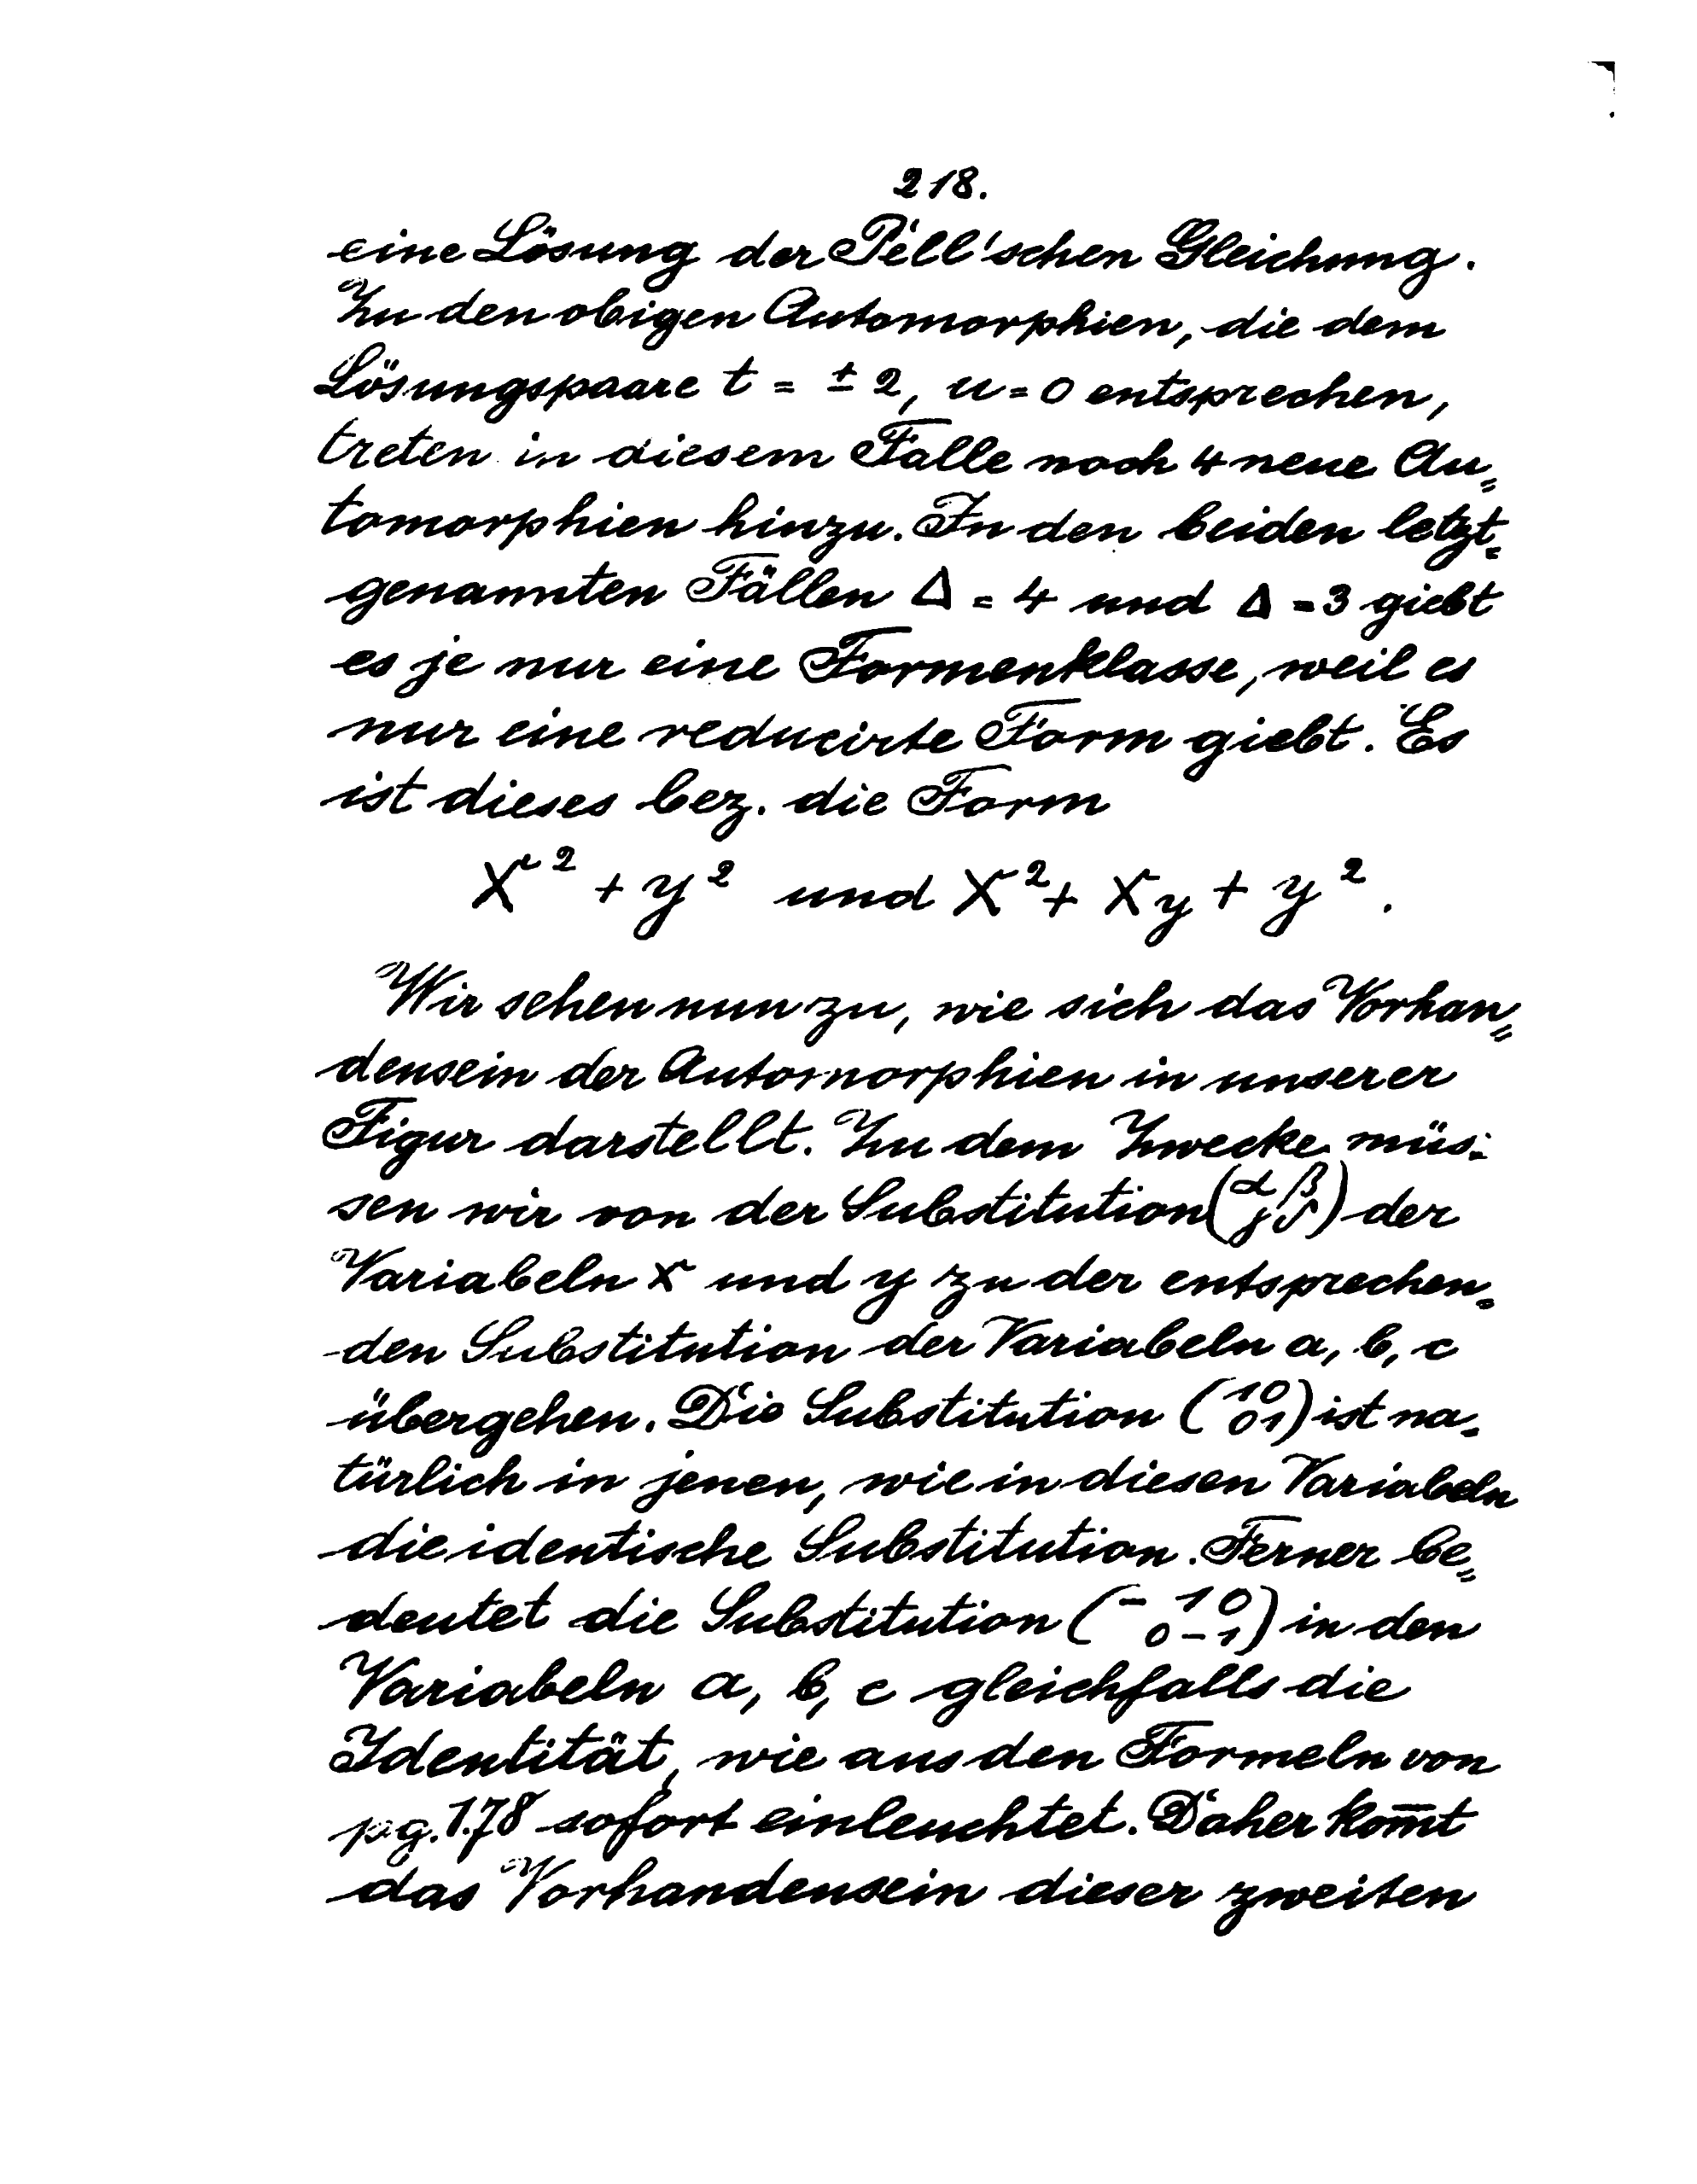 218.
eine Lösung der Pell'schen Gleichung.
Zu den obigen Automorphien, die dem
Lösungspaare t = ± 2, u = 0 entsprechen,
treten in diesem Falle noch 4 neue Au=
tomorphien hinzu. In den beiden letzt=
genannten Fällen Δ = 4 und Δ = 3 giebt
es je nur eine Formenklasse, weil es
nur eine reducirte Form giebt. Es
ist dieses bez. die Form
x² + y² und x² + xy + y².
Wir sehen nun zu, wie sich das Vorhan=
densein der Automorphien in unserer
Figur darstellt. Zu dem Zwecke müs=
sen wir von der Substitution (α β / γ δ) der
Variabeln x und y zu der entsprechen=
den Substitution der Variabeln a, b, c
übergehen. Die Substitution (1 0 / 0 1) ist na=
türlich in jenen, wie in diesen Variabeln
die identische Substitution. Ferner be=
deutet die Substitution (-1 0 / 0 -1) in den
Variabeln a, b, c gleichfalls die
Identität, wie aus den Formeln von
pg. 178 sofort einleuchtet. Daher kom̄t
das Vorhandensein dieser zweiten